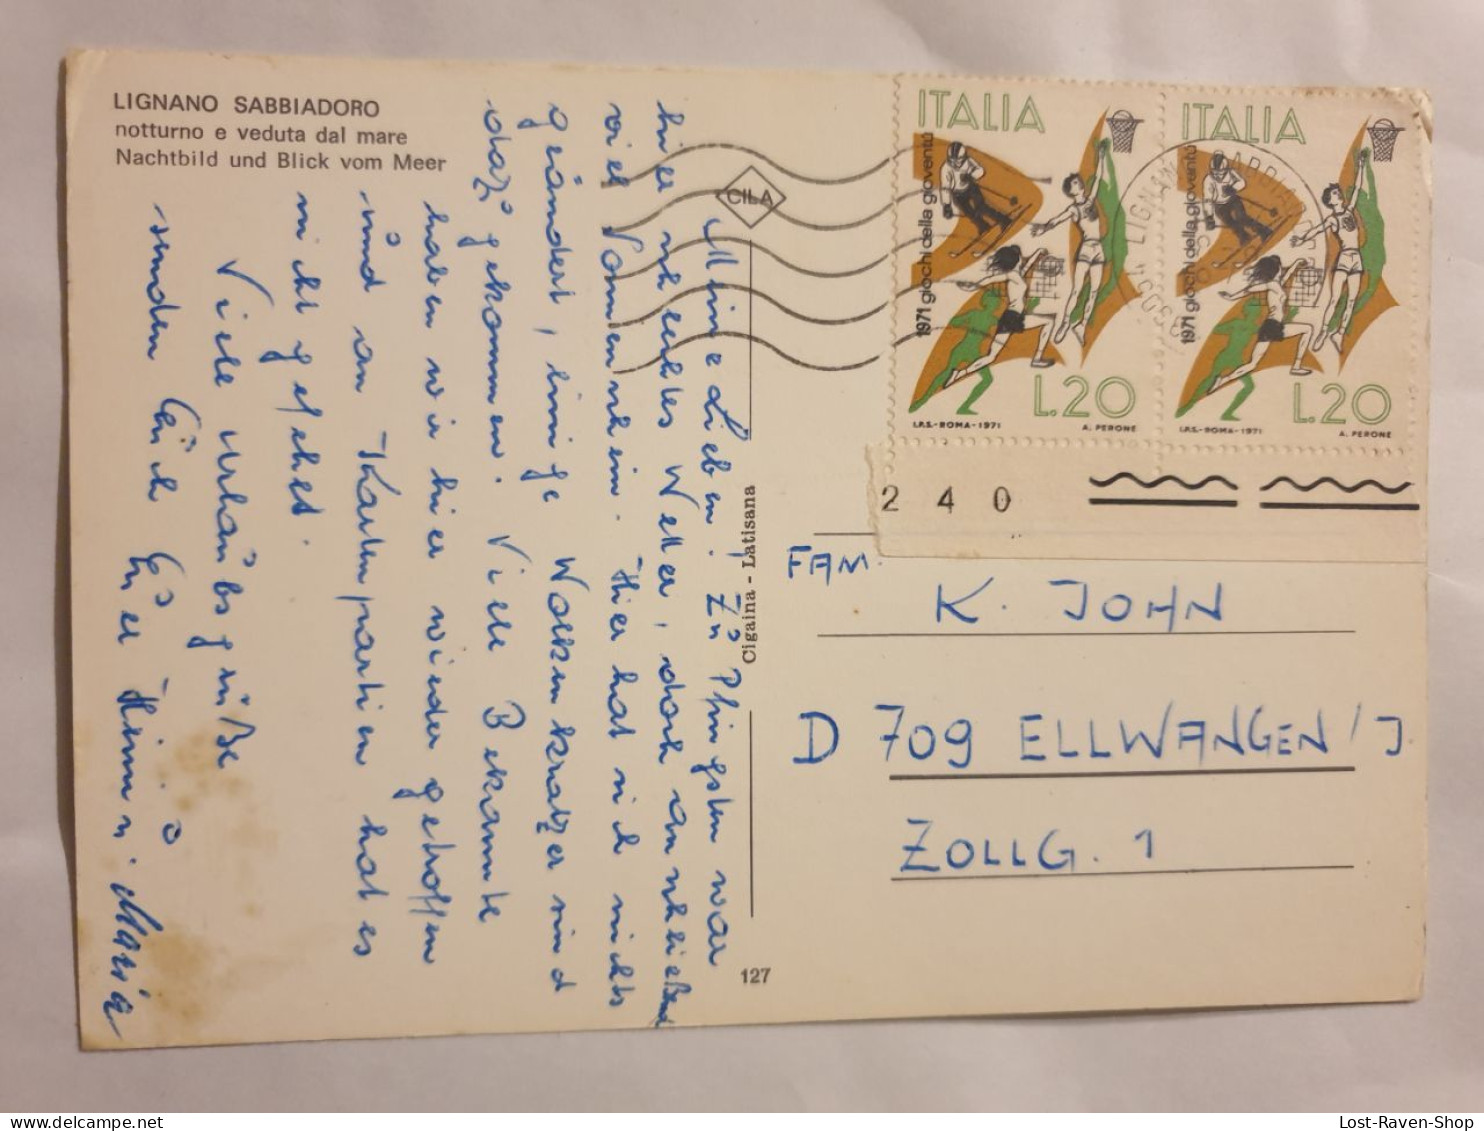 LIGNANO SABBIADORO
notturno e veduta dal mare
Nachtbild und Blick vom Meer
CILA
Meine Lieben! Zu Pfingsten war
hier schlechtes Wetter, doch anschließend
viel Sonnenschein. Hier hat sich nichts
geändert, einige Wolkenkratzer sind
dazugekommen. Viele Bekannte
haben wir hier wieder getroffen
und an Kartenpartien hat es
nicht gefehlt.
Viele Urlaubsgrüße
senden Euch Eure
Maria
Cigaina - Latisana
127
ITALIA
1971 giochi della gioventù
L.20
I.P.S.-ROMA-1971
A. PERONE
ITALIA
1971 giochi della gioventù
L.20
I.P.S.-ROMA-1971
A. PERONE
240
FAM.
K. JOHN
D 709 ELLWANGEN/J.
ZOLLG. 1
Lost-Raven-Shop